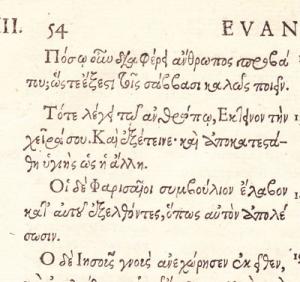 III. 54 EVAN
Πόσῳ οὖν διαφέρει ἄνθρωπος προβά
του; ὥστε ἔξεστι τοῖς σάββασι καλῶς ποιεῖν.
Τότε λέγει τῷ ἀνθρώπῳ, Ἔκτεινον τὴν
χεῖρά σου. Καὶ ἐξέτεινε· καὶ ἀποκατεστά-
θη ὑγιὴς ὡς ἡ ἄλλη.
Οἱ δὲ Φαρισαῖοι συμβούλιον ἔλαβον
κατ' αὐτοῦ ἐξελθόντες, ὅπως αὐτὸν ἀπολέ
σωσιν.
Ὁ δὲ Ἰησοῦς γνοὺς ἀνεχώρησεν ἐκεῖθεν,